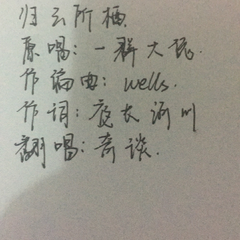 归云所栖
原唱:一群大琓.
作编曲:wells.
作词:鹿长河川
翻唱:奇谈.